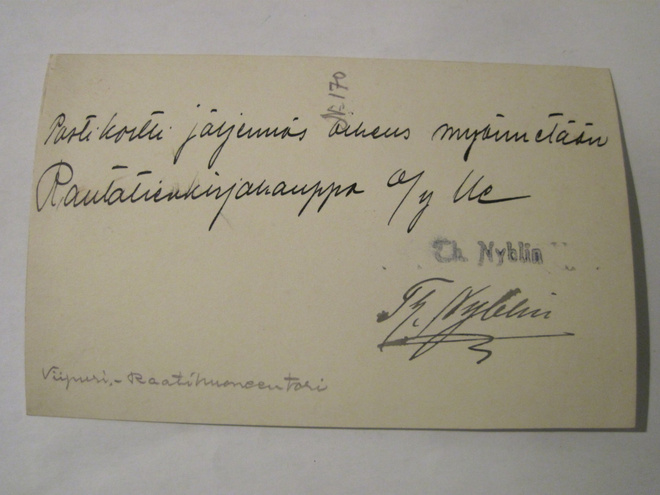 № 170
Postikortti jäljennös oikeus myönnetään
Rautatienkirjakauppa O/y lle
Th. Nyblin
Th. Nyblin
Viipuri,- Raatihuoneentori